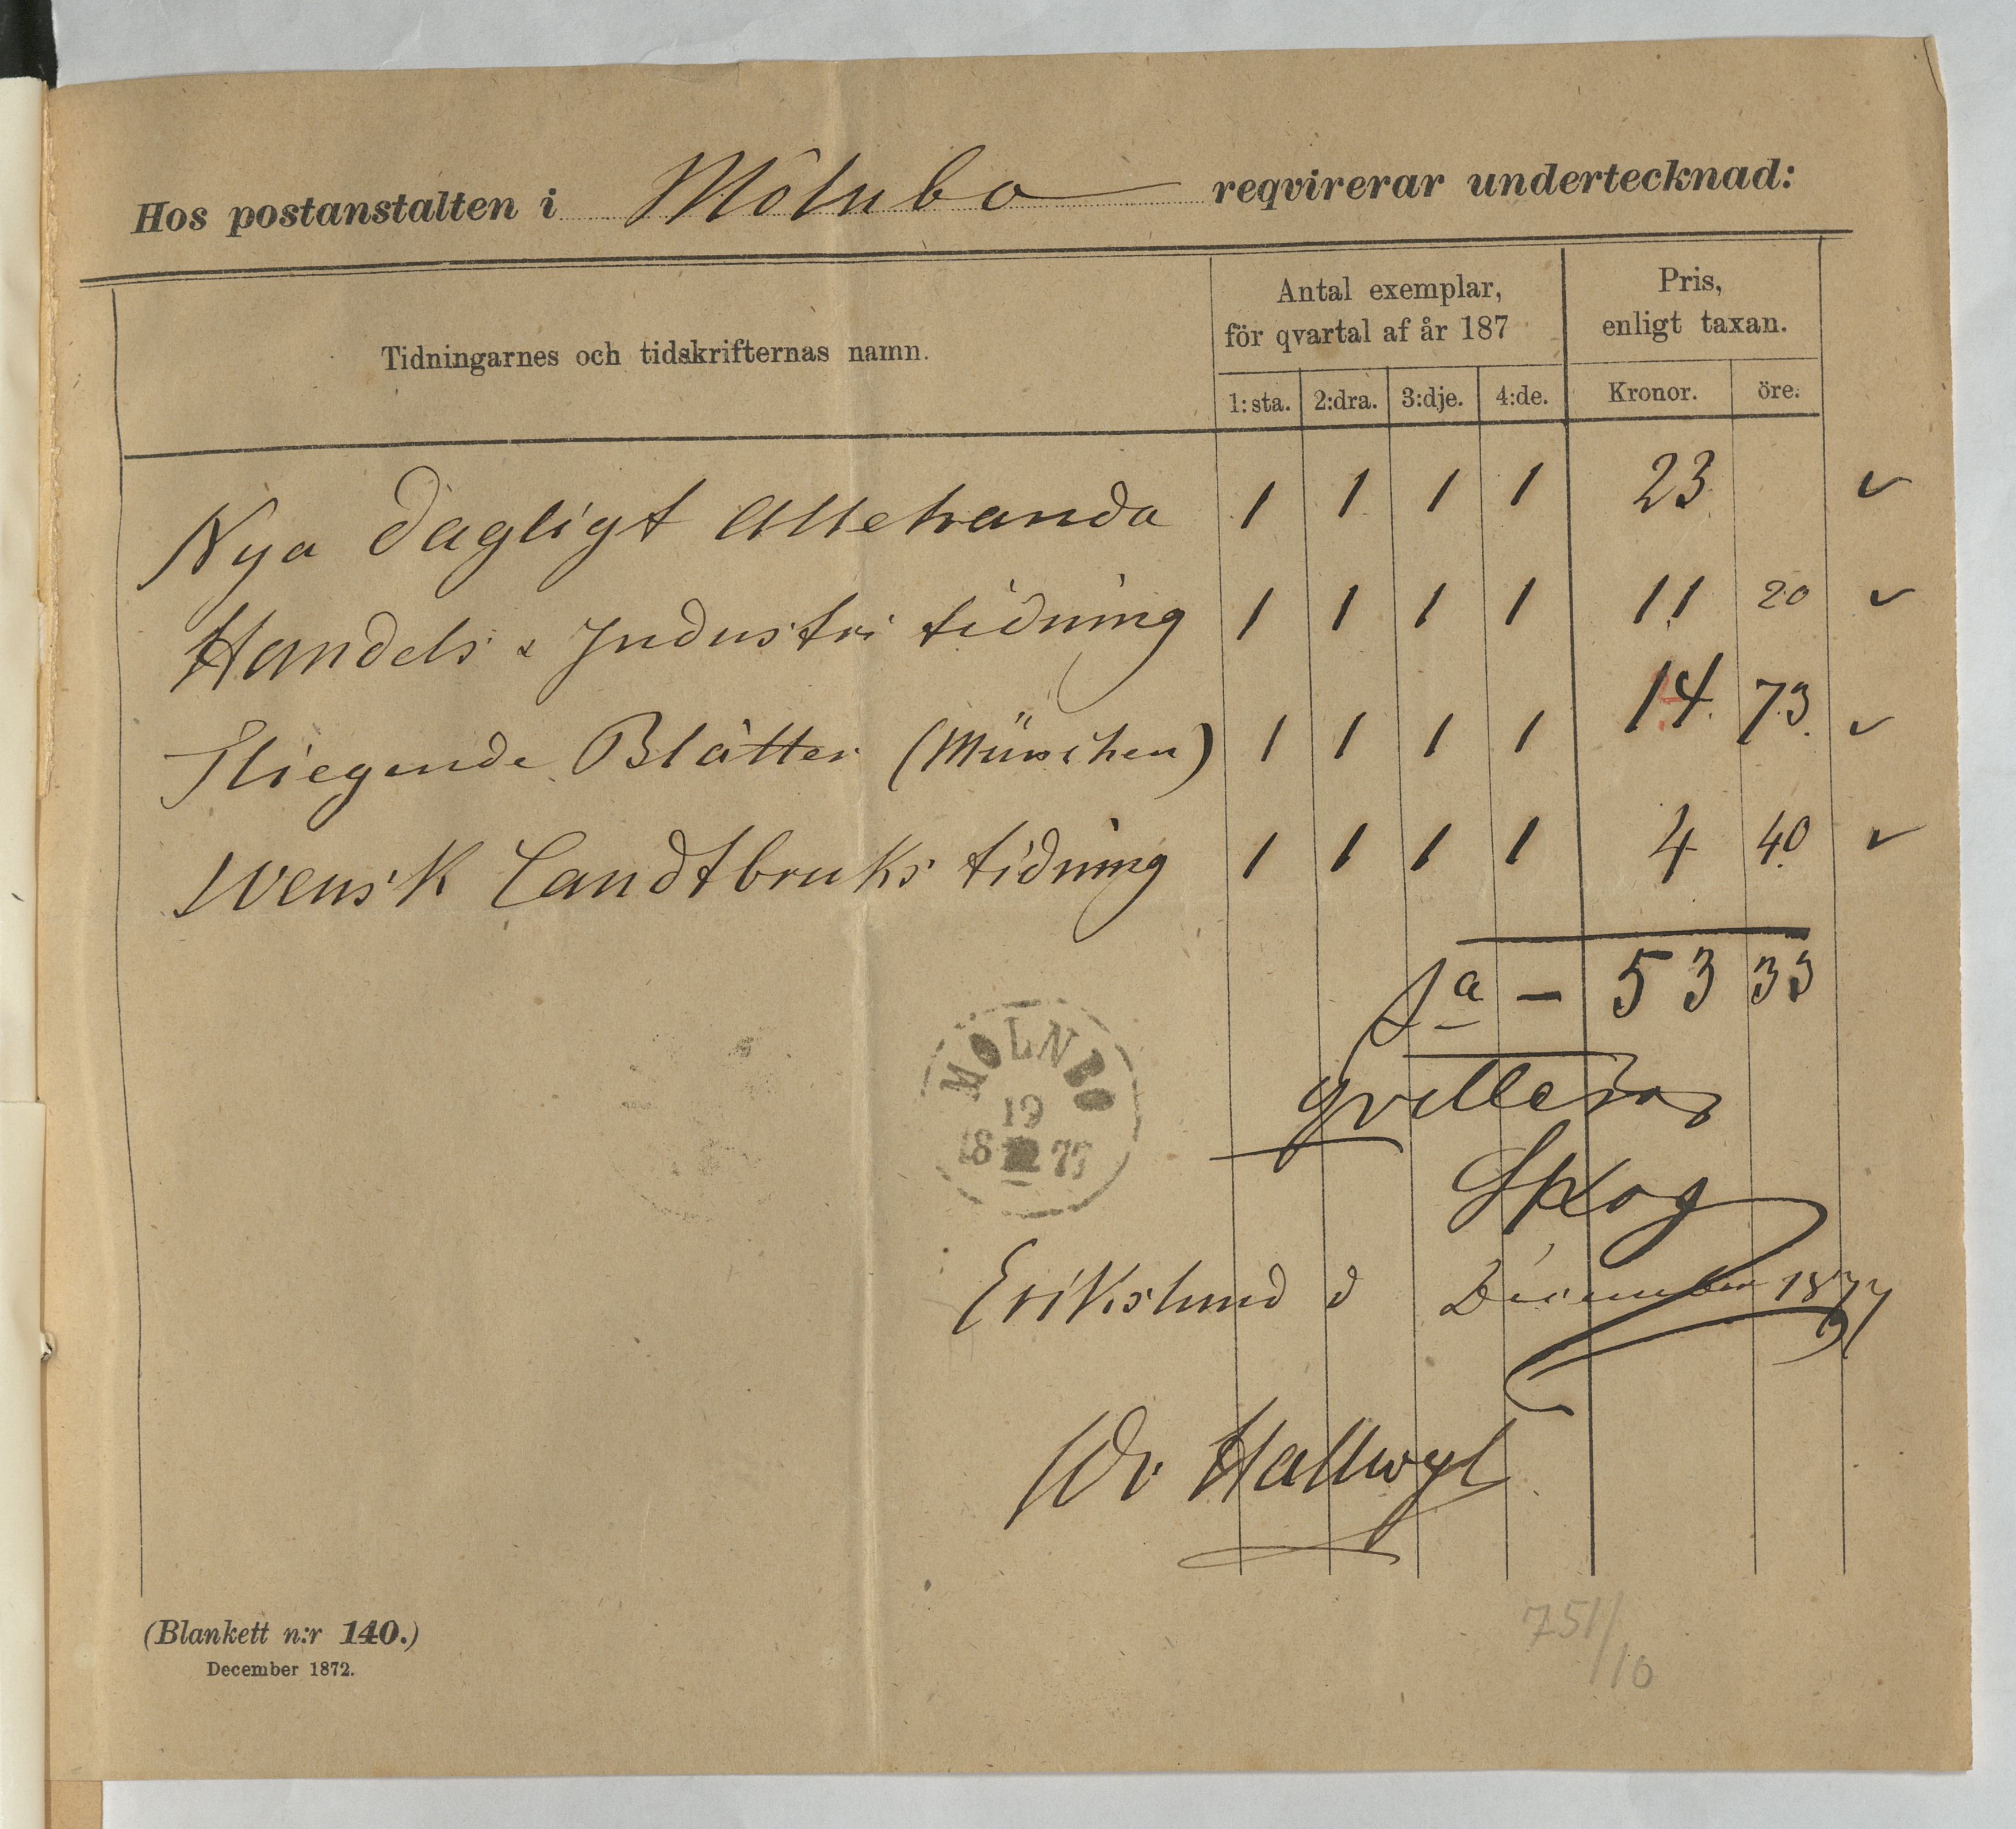 Hos postanstalten i Mölnbo reqvirerar undertecknad:
Tidningarnes och tidskrifternas namn.
Antal exemplar,
för qvartal af år 187
1:sta. 2:dra. 3:dje. 4:de.
Pris,
enligt taxan.
Kronor. öre.
Nya Dagligt Allehanda 1 1 1 1 23
Handels & Industri tidning 1 1 1 1 11 20
Fliegende Blätter (München) 1 1 1 1 14 73
Svensk Landtbruks tidning 1 1 1 1 4 40
Sa - 53 33
MÖLNBO
19
18 77
qvitteras
Skog
Erikslund d December 1877
W v. Hallwyl
(Blankett n:r 140.)
December 1872.
751/10